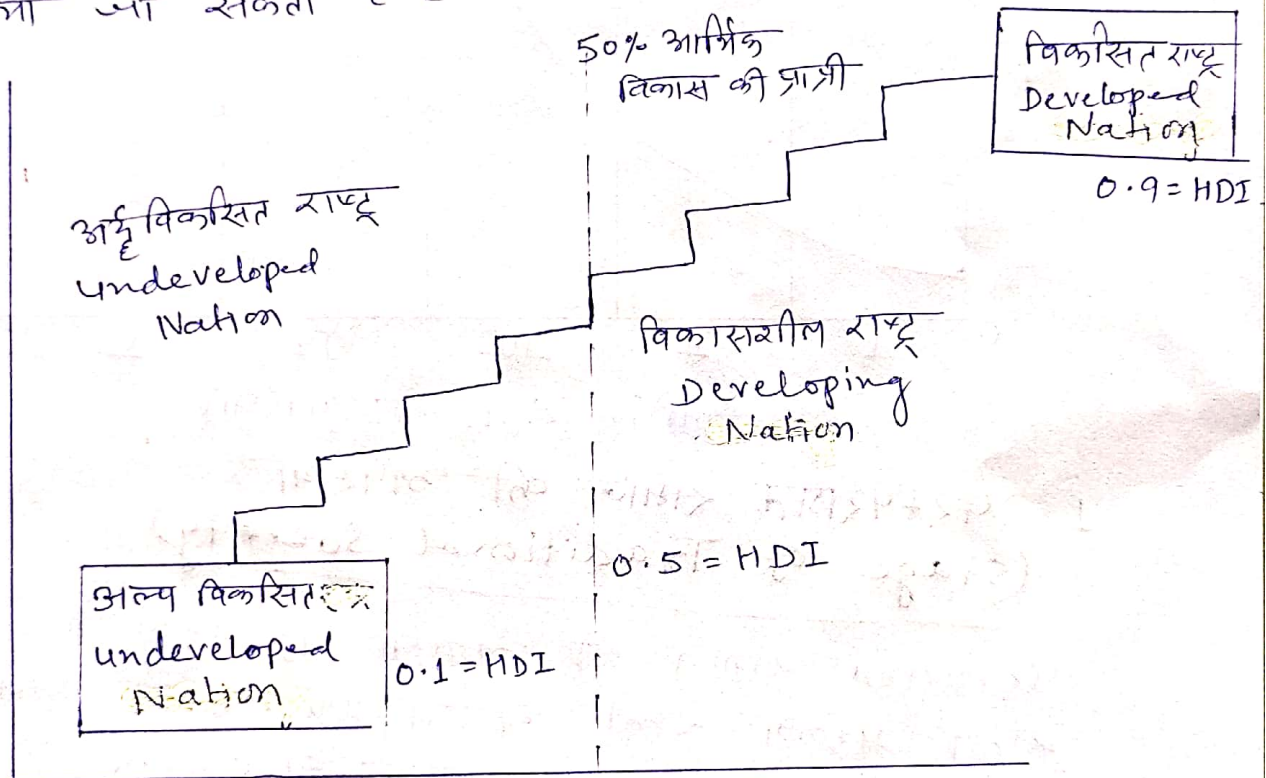 जा सकता है
50% आर्थिक
विकास की प्राप्ती
विकसित राष्ट्र
Developed
Nation
0.9 = HDI
अर्द्ध विकसित राष्ट्र
undeveloped
Nation
विकासशील राष्ट्र
Developing
Nation
0.5 = HDI
अल्प विकसित
undeveloped
Nation
0.1 = HDI